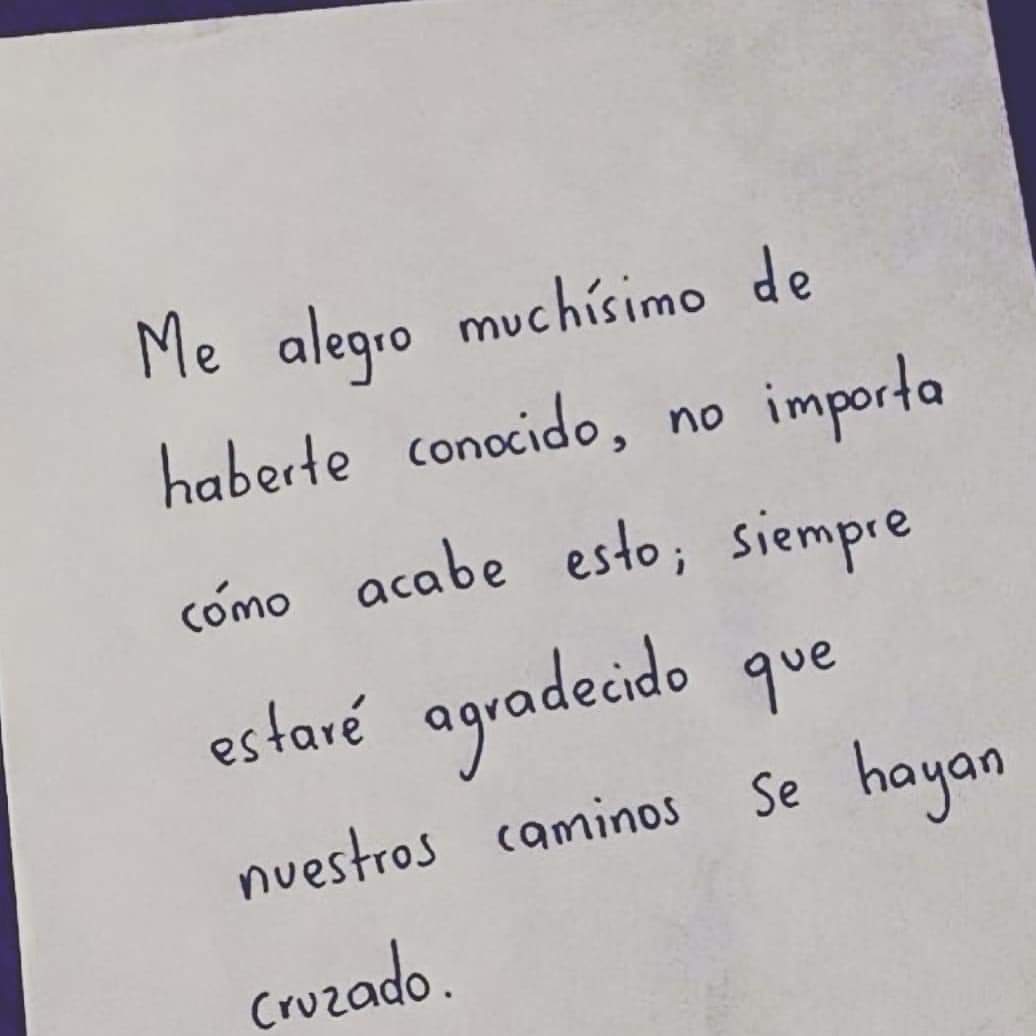 Me alegro muchísimo de
haberte conocido, no importa
cómo acabe esto; siempre
estaré agradecido que
nuestros caminos se hayan
cruzado.